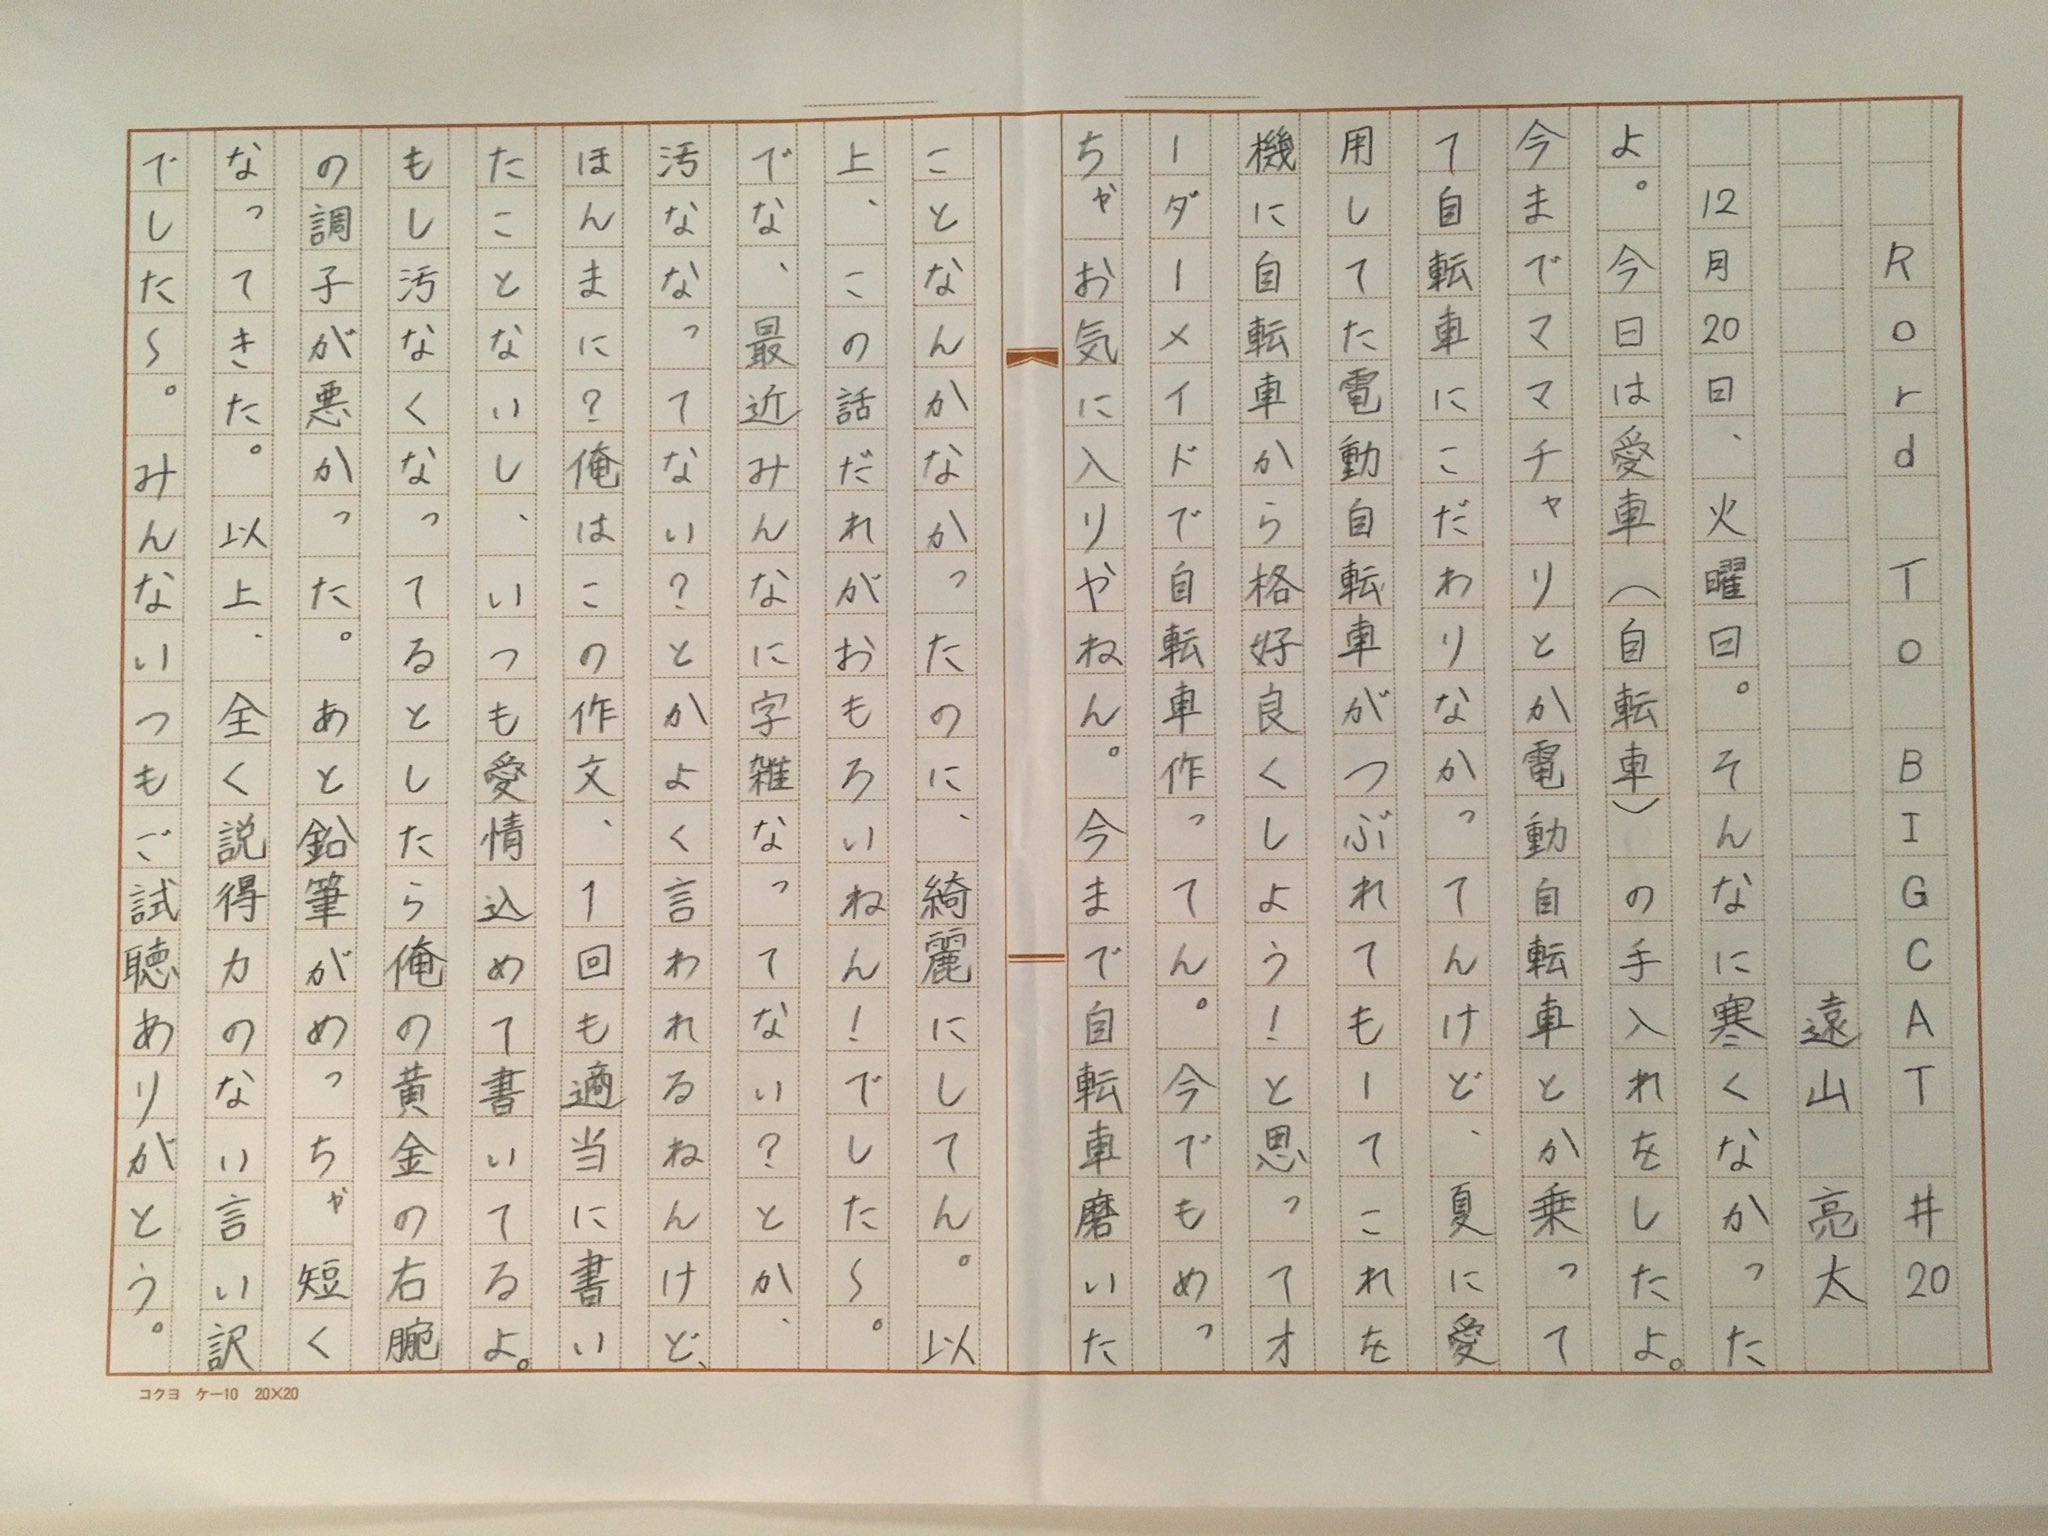 Rord To BIGCAT 井20
遠山 亮太
12月20日、火曜日。そんなに寒くなかった
よ。今日は愛車(自転車)の手入れをしたよ。
今までママチャリとか電動自転車とか乗って
て自転車にこだわりなかってんけど、夏に愛
用してた電動自転車がつぶれてもーてこれを
機に自転車から格好良くしよう!と思ってオ
ーダーメイドで自転車作ってん。今でもめっ
ちゃお気に入りやねん。今まで自転車磨いた
ことなんかなかったのに、綺麗にしてん。以
上、この話だれがおもろいねん!でした〜。
でな、最近みんなに字雑なってない?とか、
汚ななってない?とかよく言われるねんけど、
ほんまに?俺はこの作文、1回も適当に書い
たことないし、いつも愛情込めて書いてるよ。
もし汚なくなってるとしたら俺の黄金の右腕
の調子が悪かった。あと鉛筆がめっちゃ短く
なってきた。以上、全く説得力のない言い訳
でした〜。みんないつもご試聴ありがとう。
コクヨ ケー10 20×20